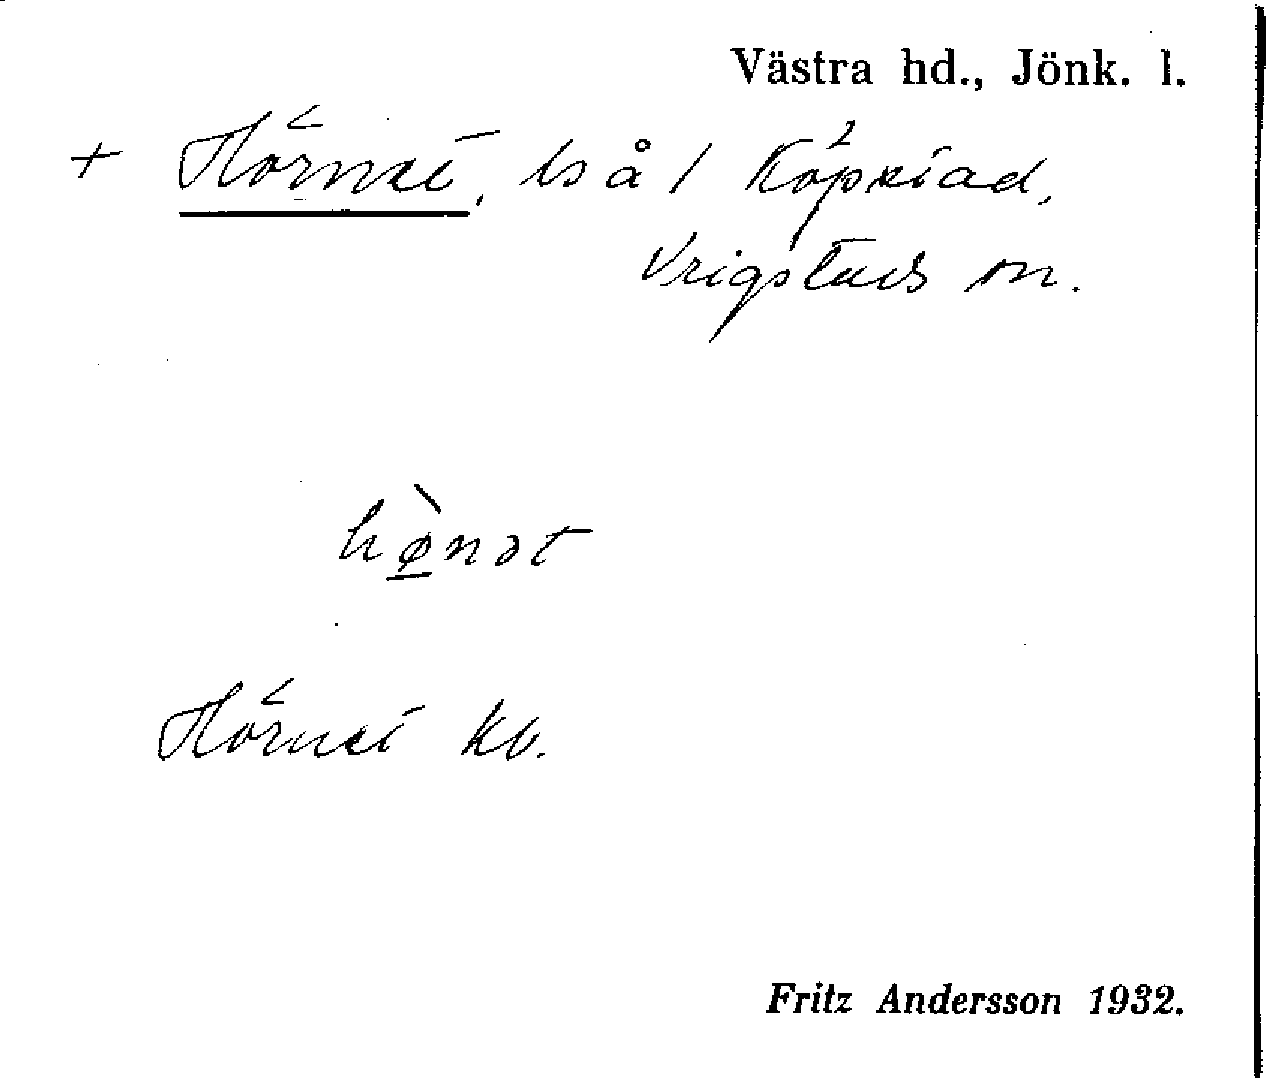 Västra hd., Jönk. l.
+ Hörnet, ls å / Köpstad,
Vrigstads sn.
hø̠̀nət
Hörnet kb.
Fritz Andersson 1932.